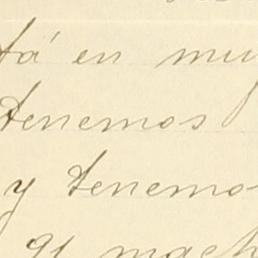 tá en mu
tenemos
y tenemo